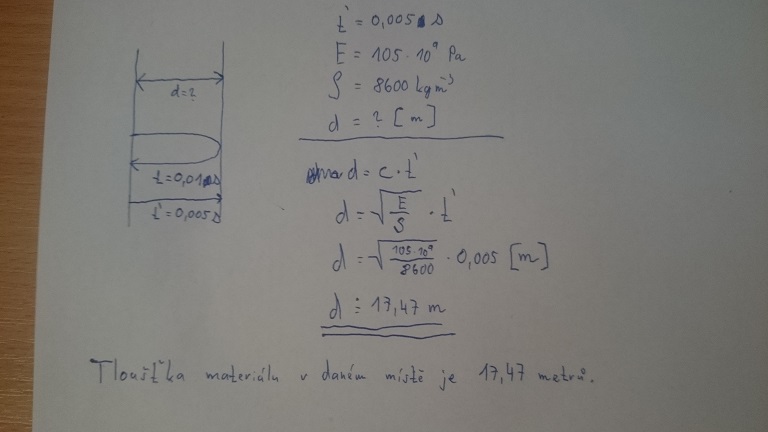 d=?
t=0,01s
t'=0,005s
t' = 0,005 s
E = 105·10⁹ Pa
ρ = 8600 kgm⁻³
d = ? [m]
d = c·t'
d = √(E/ρ) · t'
d = √(105·10⁹/8600) · 0,005 [m]
d ≐ 17,47 m
Tloušťka materiálu v daném místě je 17,47 metrů.